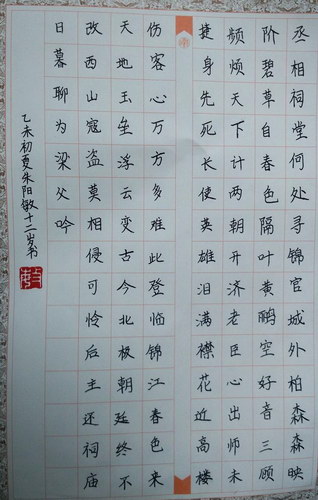 丞相祠堂何处寻锦官城外柏森森映
阶碧草自春色隔叶黄鹂空好音三顾
频烦天下计两朝开济老臣心出师未
捷身先死长使英雄泪满襟花近高楼
伤客心万方多难此登临锦江春色来
天地玉垒浮云变古今北极朝廷终不
改西山寇盗莫相侵可怜后主还祠庙
日暮聊为梁父吟
乙未初夏朱阳敏十二岁书